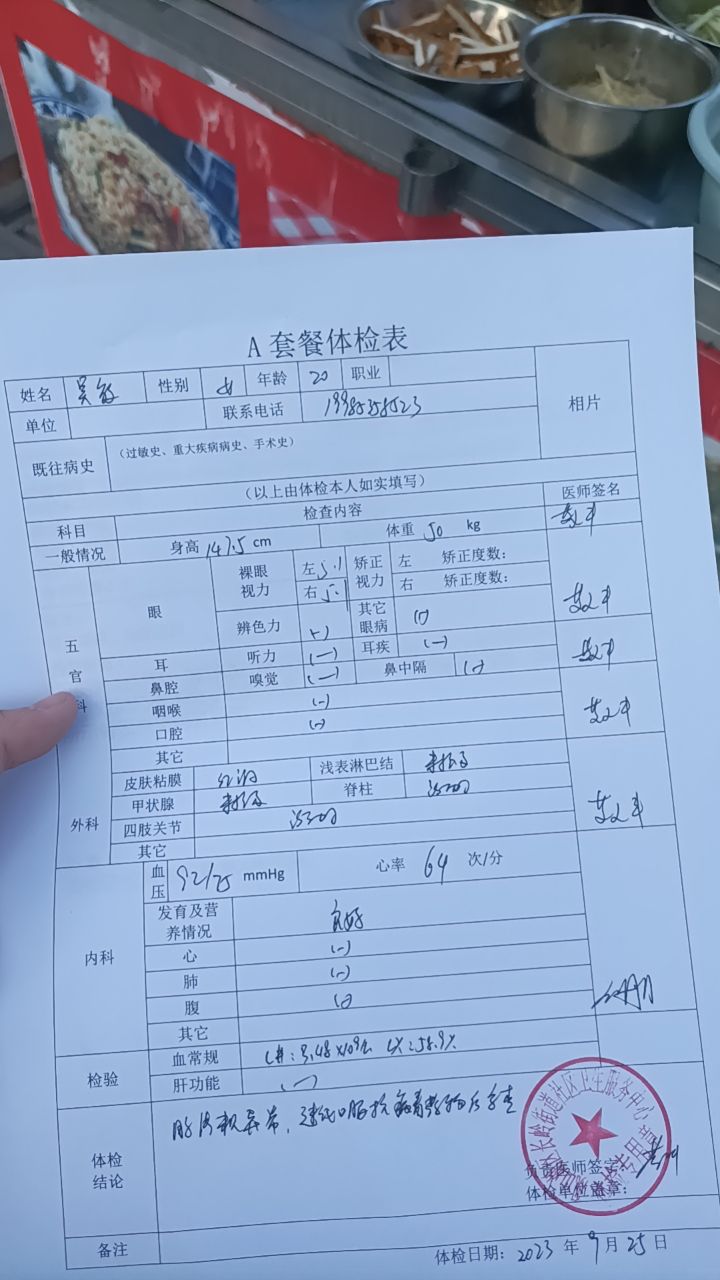 A 套餐体检表
姓名 吴敏 性别 女 年龄 20 职业
单位 联系电话 相片
既往病史 (过敏史、重大疾病病史、手术史)
(以上由体检本人如实填写)
科目 检查内容 医师签名
一般情况 身高 147.5 cm 体重 50 kg
五官科 眼 裸眼视力 左 5.1 矫正视力 左 矫正度数:
右 5.1 右 矫正度数:
辨色力 (-) 其它眼病 (-)
耳 听力 (-) 耳疾 (-)
鼻腔 嗅觉 (-) 鼻中隔 (-)
咽喉 (-)
口腔 (-)
其它
外科 皮肤粘膜 红润 浅表淋巴结 未扪及
甲状腺 未扪及 脊柱
四肢关节
其它
内科 血压 92/75 mmHg 心率 64 次/分
发育及营养情况 良好
心 (-)
肺 (-)
腹 (-)
其它
检验 血常规
肝功能 (-)
体检结论
长岭街道社区卫生服务中心
负责医师签字:
体检单位盖章:
备注 体检日期: 2023 年 9 月 25 日